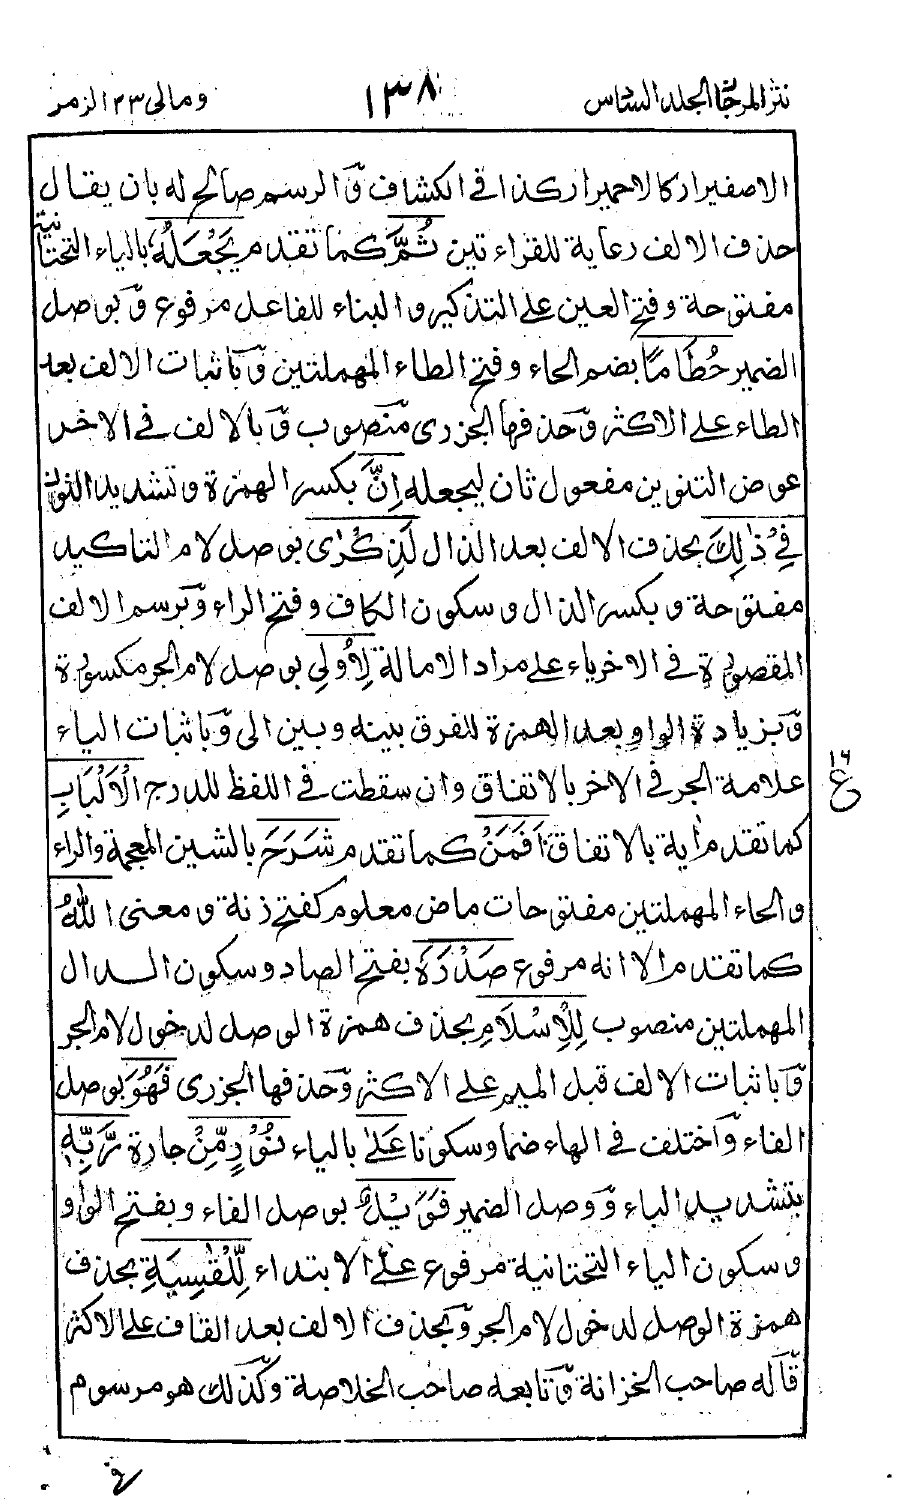 نثر المرجان الجلد السادس
١٣٨
ومالي ٢٣ الزمر
الاصفيرار كالاحميرار كذا في الكشاف وٓالرسم صالح له بان يقال
حذف الالف رعاية للقراءتين ثُمَّ كما تقدم يَجْعَلُهُ بالياء التحتانية
مفتوحة وفتح العين على التذكير والبناء للفاعل مرفوع وٓبوصل
الضمير حُطَامًا بضم الحاء وفتح الطاء المهملتين وٓباثبات الالف بعد
الطاء على الاكثر وٓحذفها الجزرى منصوب وٓبالالف في الاخر
عوض التنوين مفعول ثان ليجعله اِنَّ بكسر الهمزة وتشديد النون
فِيْ ذٰلِكَ بحذف الالف بعد الذال لَذِكْرٰى بوصل لام التاكيد
مفتوحة وبكسر الذال وسكون الكاف وفتح الراء وٓبرسم الالف
المقصورة في الاخر ياء على مراد الامالة لِاُولِي بوصل لام الجر مكسورة
وٓبزيادة الواو بعد الهمزة للفرق بينه وبين الى وٓباثبات الياء
علامة الجر في الاخر بالاتفاق وان سقطت في اللفظ للدرج الْاَلْبَابِ
كما تقدم اٰية بالاتفاق اَفَمَنْ كما تقدم شَرَحَ بالشين المعجمة والراء
١٦
ع
والحاء المهملتين مفتوحات ماض معلوم كفتح زنة ومعنى اللّٰهُ
كما تقدم الا انه مرفوع صَدْرَهٗ بفتح الصاد وسكون الدال
المهملتين منصوب لِلْاِسْلَامِ بحذف همزة الوصل لدخول لام الجر
وٓباثبات الالف قبل الميم على الاكثر وٓحذفها الجزرى فَهُوَ بوصل
الفاء وٓاختلف في الهاء ضما وسكونا عَلٰى بالياء نُوْرٍ مِّنْ جارة رَّبِّهٖ
بتشديد الباء وٓوصل الضمير فَوَيْلٌ بوصل الفاء وبفتح الواو
وسكون الياء التحتانية مرفوع على الابتداء لِّلْقٰسِيَةِ بحذف
همزة الوصل لدخول لام الجر وٓبحذف الالف بعد القاف على الاكثر
قاله صاحب الخزانة وٓتابعه صاحب الخلاصة وكذلك هو مرسوم
في